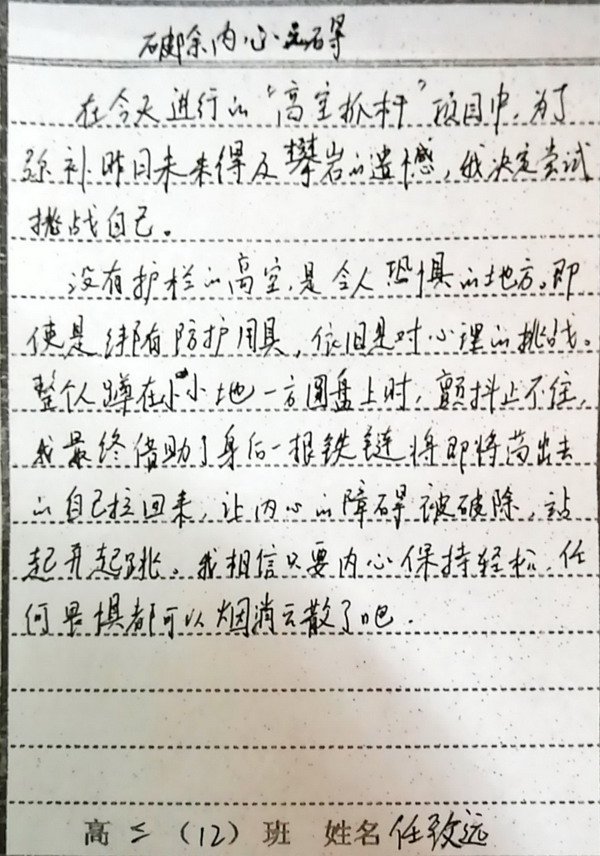 破除内心之碍
在今天进行的“高空抓杆”项目中，为了
弥补昨日未来得及攀岩的遗憾，我决定尝试
挑战自己。
没有护栏的高空，是令人恐惧的地方。即
使是绑有防护用具，依旧是对心理的挑战。
整个人蹲在小小地一方圆盘上时，颤抖止不住，
我最终借助了身后一根铁链将即将荡出去
的自己拉回来，让内心的障碍被破除，站
起再起跳。我相信只要内心保持轻松，任
何畏惧都可以烟消云散了吧.
高二（12）班 姓名 任致远